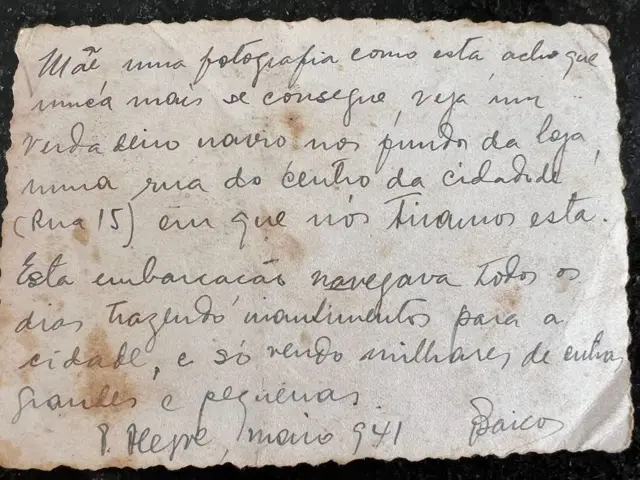 Mãe uma fotografia como esta acho que
nunca mais se consegue, veja um
verdadeiro navio nos fundos da loja,
numa rua do centro da cidade de
(Rua 15) em que nós tiramos esta.
Esta embarcacão navegava todos os
dias trazendo mantimentos para a
cidade, e só vendo milhares de outras
grandes e pequenas.
P. Alegre, maio 941